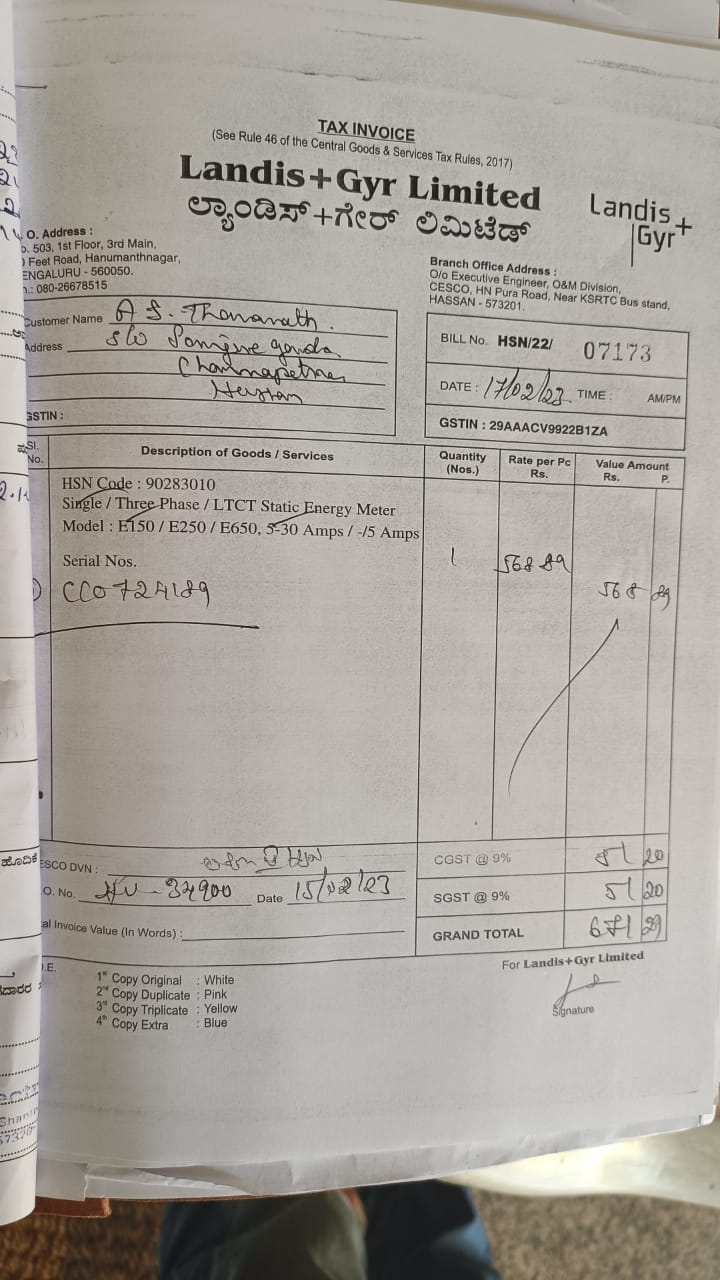 TAX INVOICE
(See Rule 46 of the Central Goods & Services Tax Rules, 2017)
Landis+Gyr Limited
ಲ್ಯಾಂಡಿಸ್+ಗೇರ್ ಲಿಮಿಟೆಡ್
Landis+
Gyr
O. Address :
503, 1st Floor, 3rd Main,
Feet Road, Hanumanthnagar,
ENGALURU - 560050.
.: 080-26678515
Branch Office Address :
O/o Executive Engineer, O&M Division,
CESCO, HN Pura Road, Near KSRTC Bus stand,
HASSAN - 573201.
Customer Name A S. 
Address S/o
Hassan
GSTIN :
BILL No. HSN/22/ 07173
DATE : 17/02/23 TIME : AM/PM
GSTIN : 29AAACV9922B1ZA
Sl. No. Description of Goods / Services Quantity (Nos.) Rate per Pc Rs. Value Amount Rs. P.
HSN Code : 90283010
Single / Three Phase / LTCT Static Energy Meter
Model : E150 / E250 / E650, 5-30 Amps / -/5 Amps
Serial Nos. 1 568 89
CC0724189 568 89
ESCO DVN :
CGST @ 9% 51 20
O. No. 34900 Date 15/02/23
SGST @ 9% 51 20
al Invoice Value (In Words) :
GRAND TOTAL 671 29
For Landis+Gyr Limited
1st Copy Original : White
2nd Copy Duplicate : Pink
3rd Copy Triplicate : Yellow
4th Copy Extra : Blue
Signature